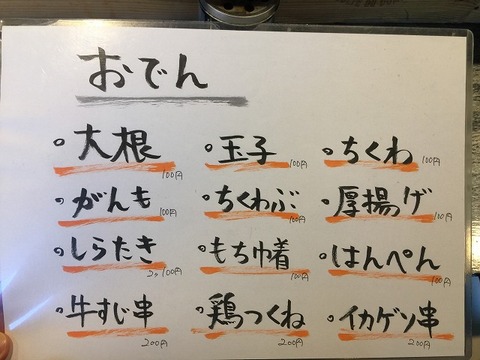 おでん
大根 100円 玉子 100円 ちくわ 100円
がんも 100円 ちくわぶ 100円 厚揚げ 100円
しらたき 2ヶ100円 もち巾着 100円 はんぺん 100円
牛すじ串 200円 鶏つくね 200円 イカゲソ串 200円